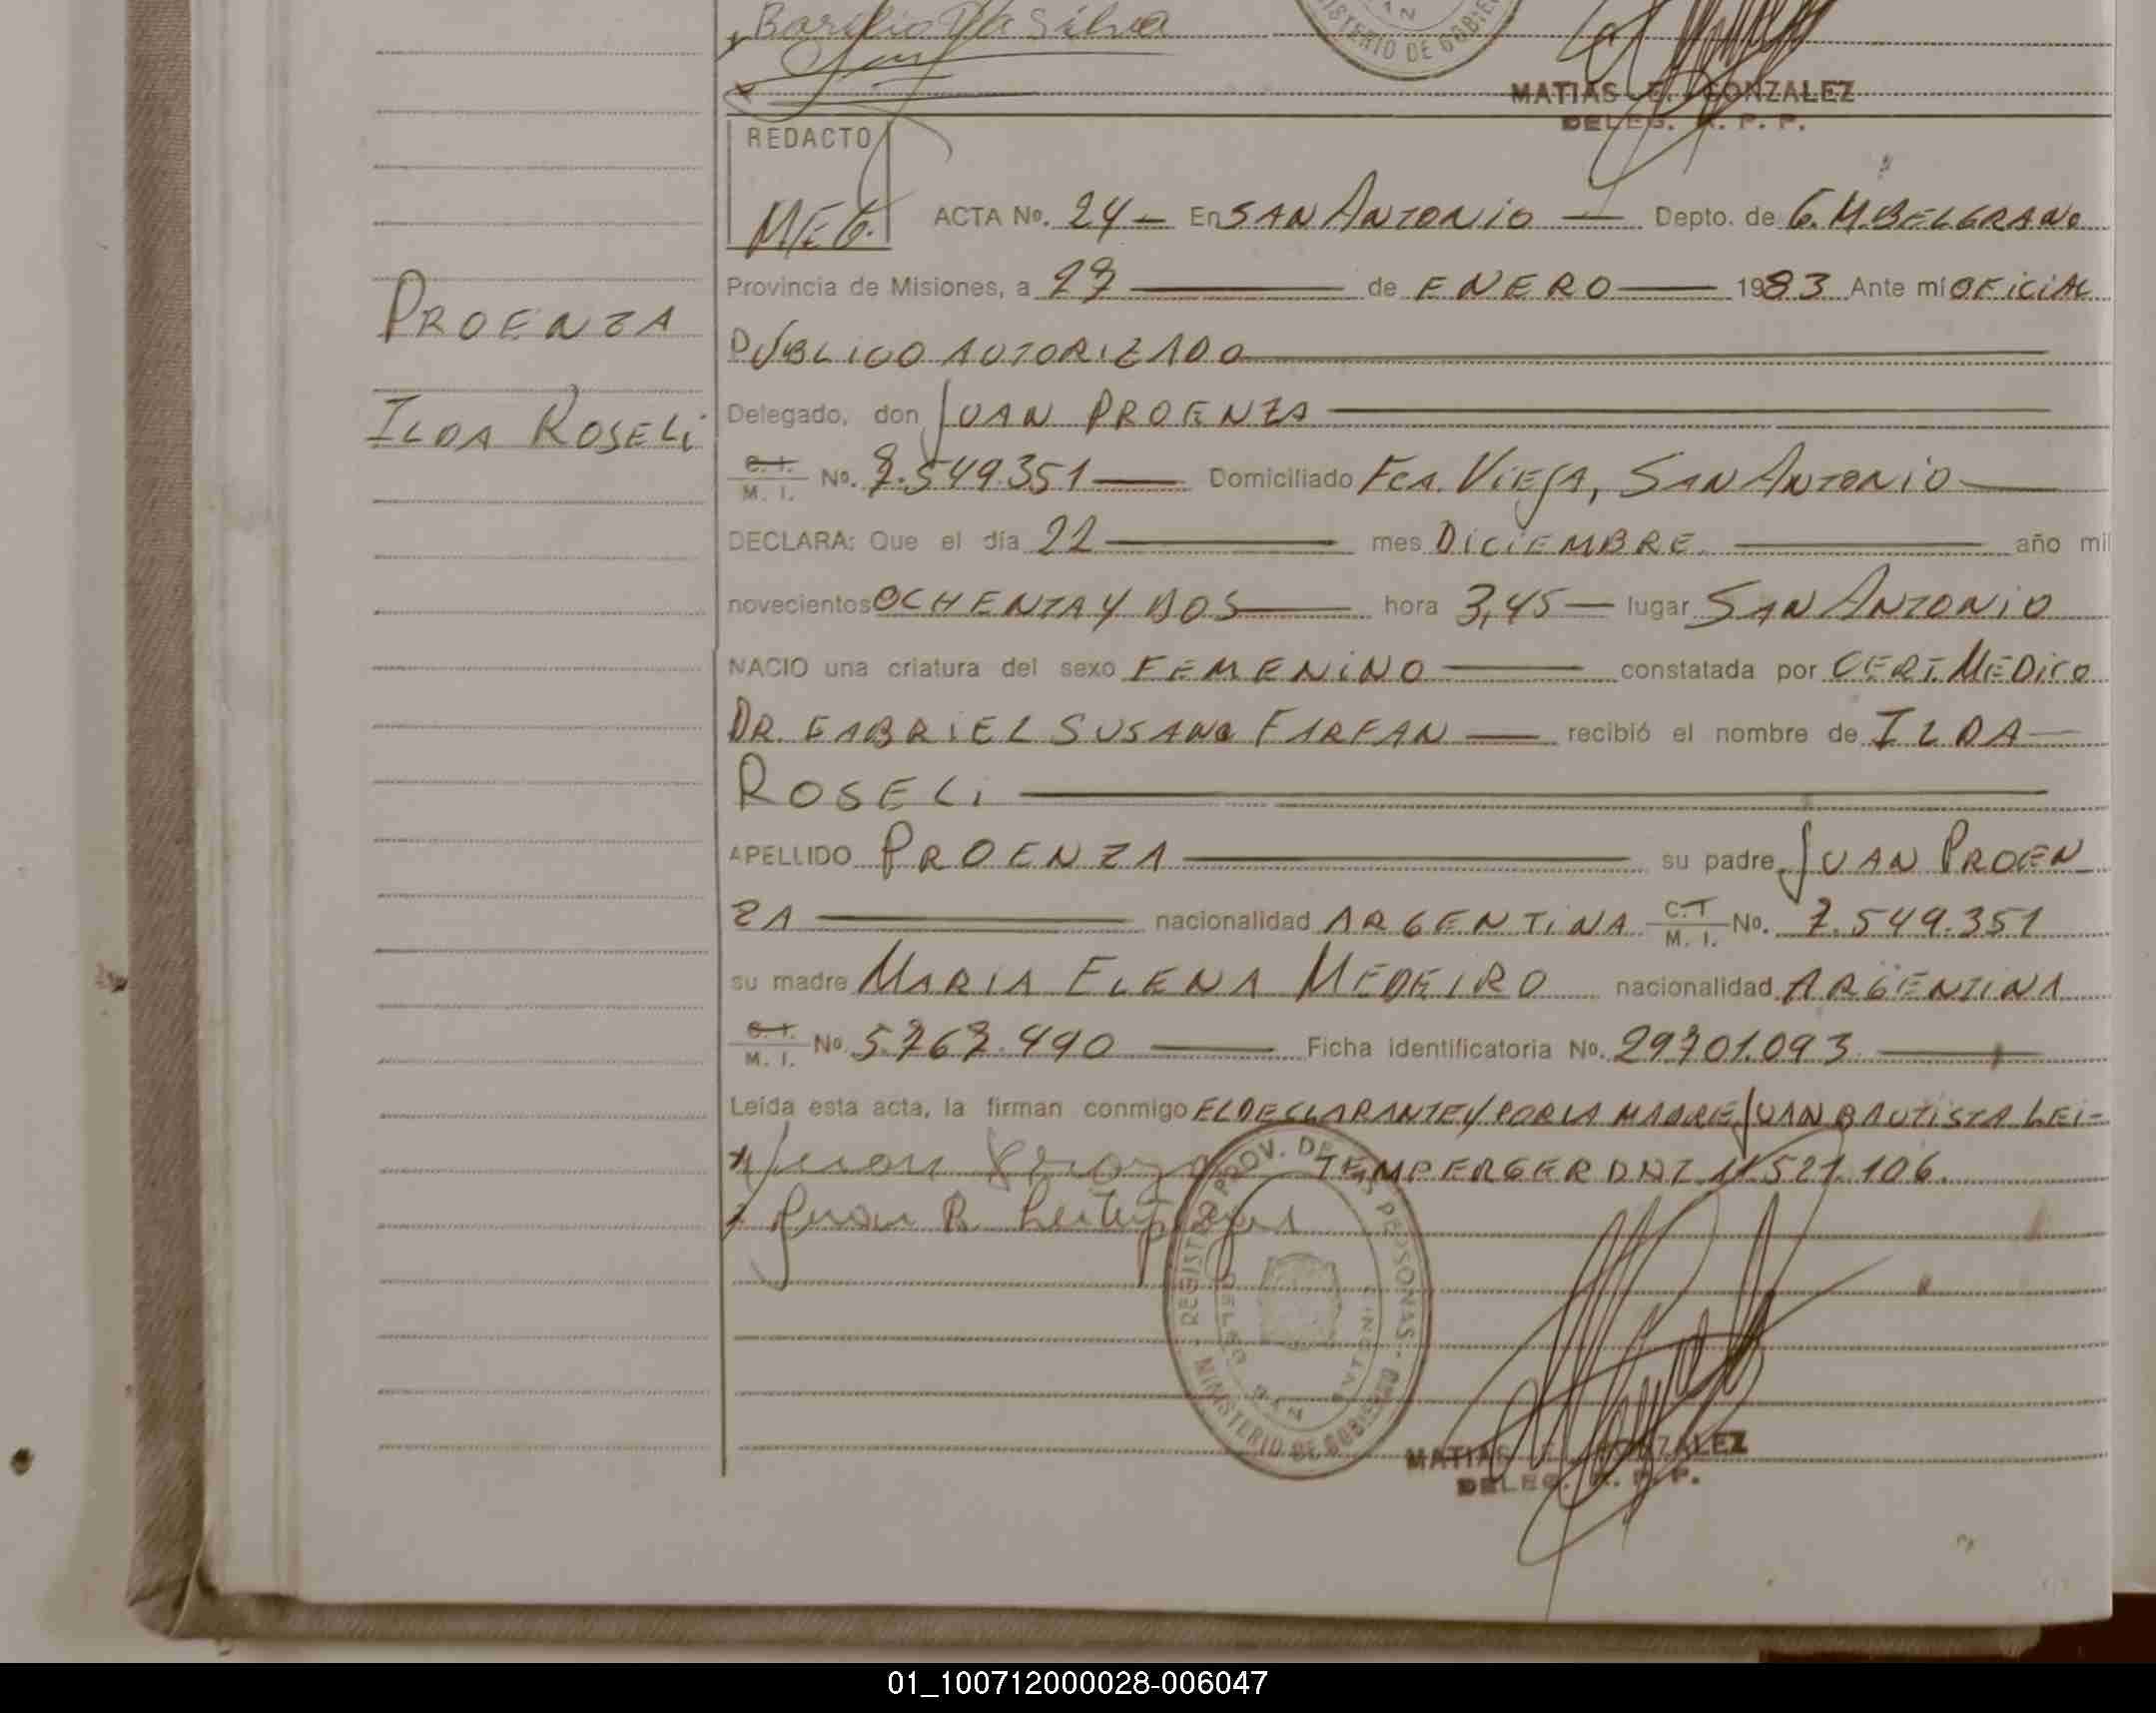 Basilio Da Silva
MINISTERIO DE GOBIE
MATIAS E. GONZALEZ
DELEG. R. P. P.
REDACTO
M.E.G. ACTA No. 24 — En SAN ANTONIO — Depto. de G. M. BELGRANO
Provincia de Misiones, a 27 — de ENERO — 1983 Ante mí OFICIAL
PUBLICO AUTORIZADO
PROENZA
ILDA ROSELI
Delegado, don JUAN PROENZA
C. I. / M. I. No. 7.549.351 — Domiciliado Fca. VIEJA, SAN ANTONIO —
DECLARA: Que el día 22 — mes DICIEMBRE — año mil
novecientos OCHENTA Y DOS — hora 3,45 — lugar SAN ANTONIO
NACIO una criatura del sexo FEMENINO — constatada por CERT. MEDICO
DR. GABRIEL SUSANO FARFAN — recibió el nombre de ILDA —
ROSELI
APELLIDO PROENZA — su padre JUAN PROEN
ZA — nacionalidad ARGENTINA C. I. / M. I. No. 7.549.351
su madre MARIA ELENA MEDEIRO nacionalidad ARGENTINA
C. I. / M. I. No. 5.767.490 — Ficha identificatoria No. 29701.093 —
Leída esta acta, la firman conmigo EL DECLARANTE Y POR LA MADRE JUAN BAUTISTA LEI-
TEMPERGER DNI 11.521.106.
REGISTRO PROV. DE LAS PERSONAS - MINISTERIO DE GOBIERNO
MATIAS E. GONZALEZ
DELEG. R. P. P.
01_100712000028-006047